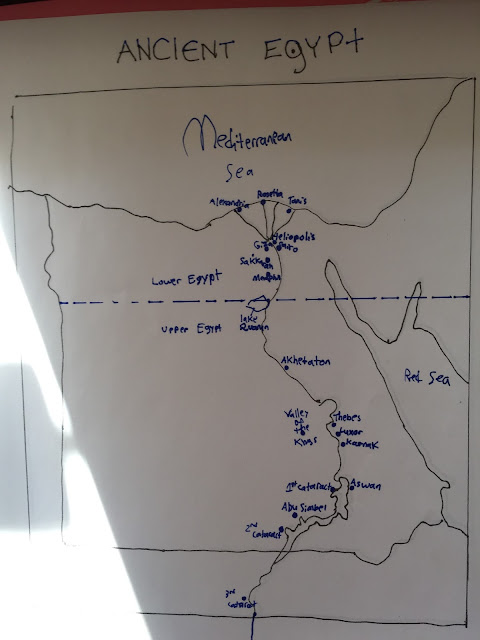 ANCIENT EgYPt
Mediterranean
Sea
Alexandria
Rosetta
Tanis
Heliopolis
Giza
Cairo
Memphis
Lower Egypt
Upper Egypt
lake
Akhetaton
Red Sea
Valley
of
the
Kings
Thebes
Luxor
Karnak
1st Cataract
Aswan
Abu Simbel
2nd
Cataract
3rd
Cataract